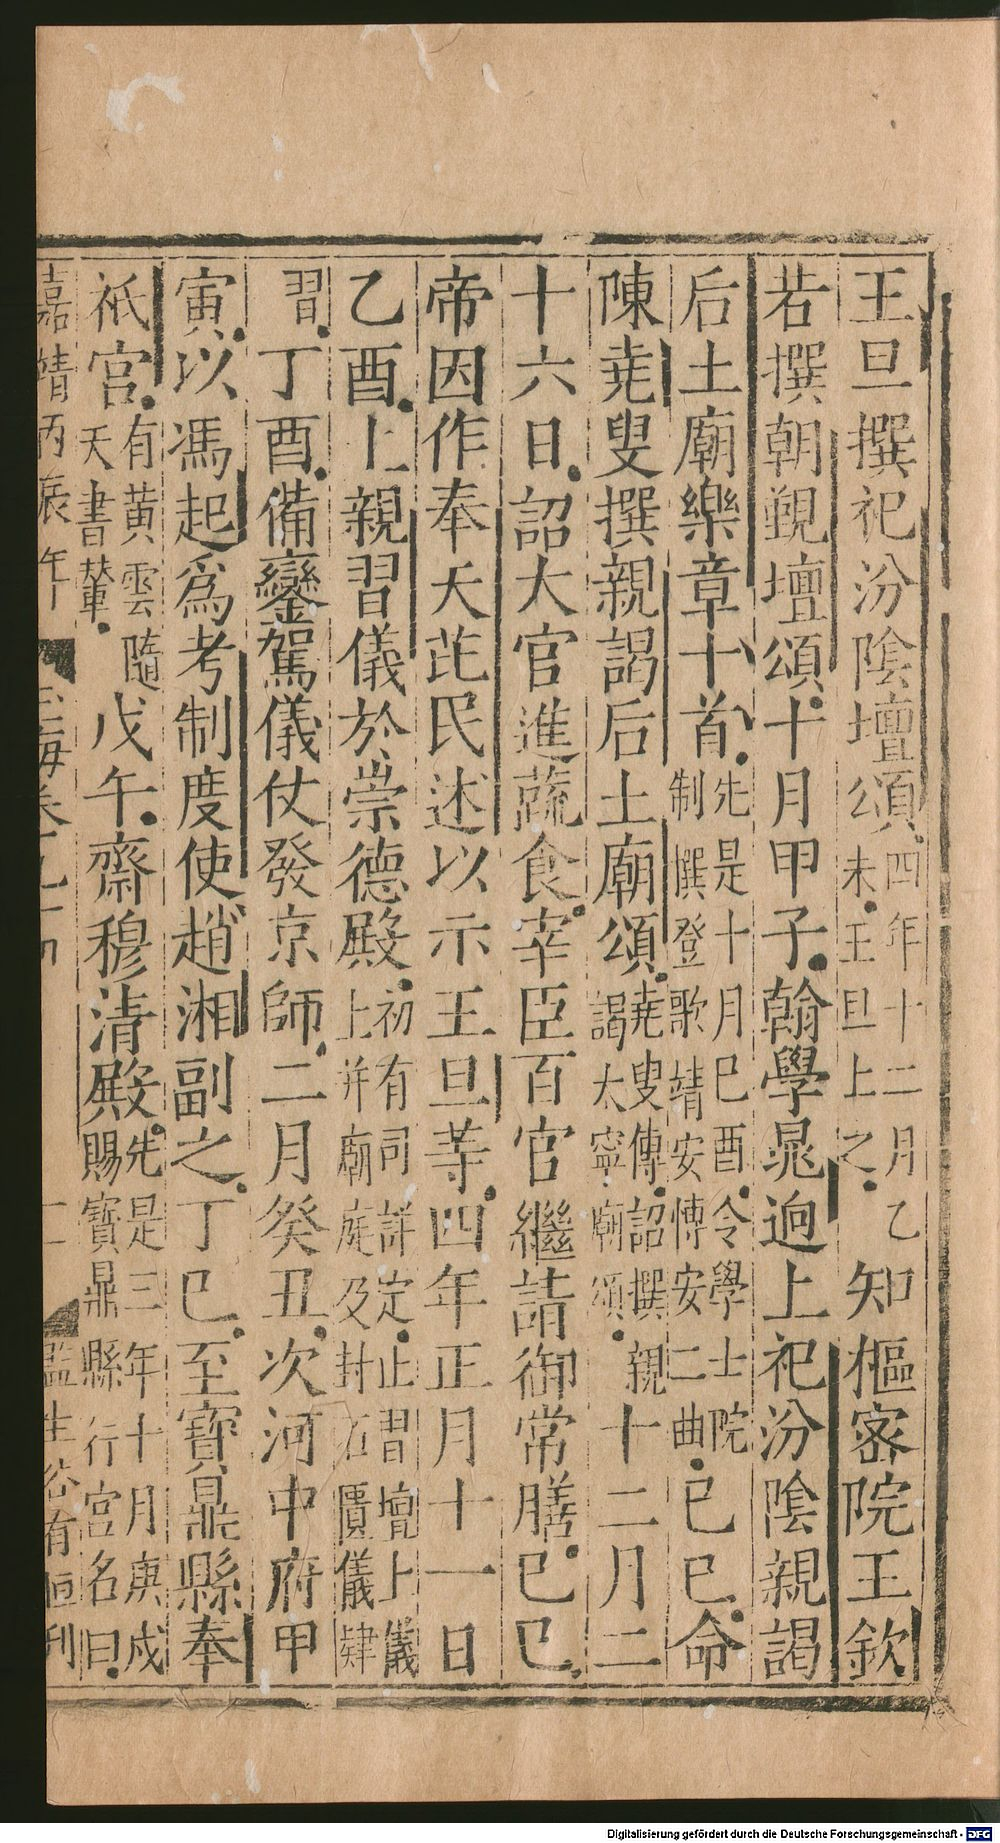 王旦撰祀汾陰壇頌四年十二月乙未王旦上之知樞密院王欽
若撰朝覲壇頌十月甲子翰學晁逈上祀汾陰親謁
后土廟樂章十首先是十月巳酉令學士院制撰登歌靖安博安二曲巳巳命
陳堯叟撰親謁后土廟頌堯叟傳詔撰親謁太寧廟頌十二月二
十六日詔大官進蔬食宰臣百官繼請御常膳巳巳
帝因作奉天茈民述以示王旦等四年正月十一日
乙酉上親習儀於崇德殿初有司詳定止習壇上儀上并廟庭及封石匱儀肄
習丁酉備鑾駕儀仗發京師二月癸丑次河中府甲
寅以馮起為考制度使趙湘副之丁巳至寶鼎縣奉
祇宮有黃雲隨天書輦戊午齋穆清殿先是三年十月庚戍賜寶鼎縣行宮名曰
嘉靖丙辰年 玉海卷九十四 二 監生 有恒刊
Digitalisierung gefördert durch die Deutsche Forschungsgemeinschaft - DFG